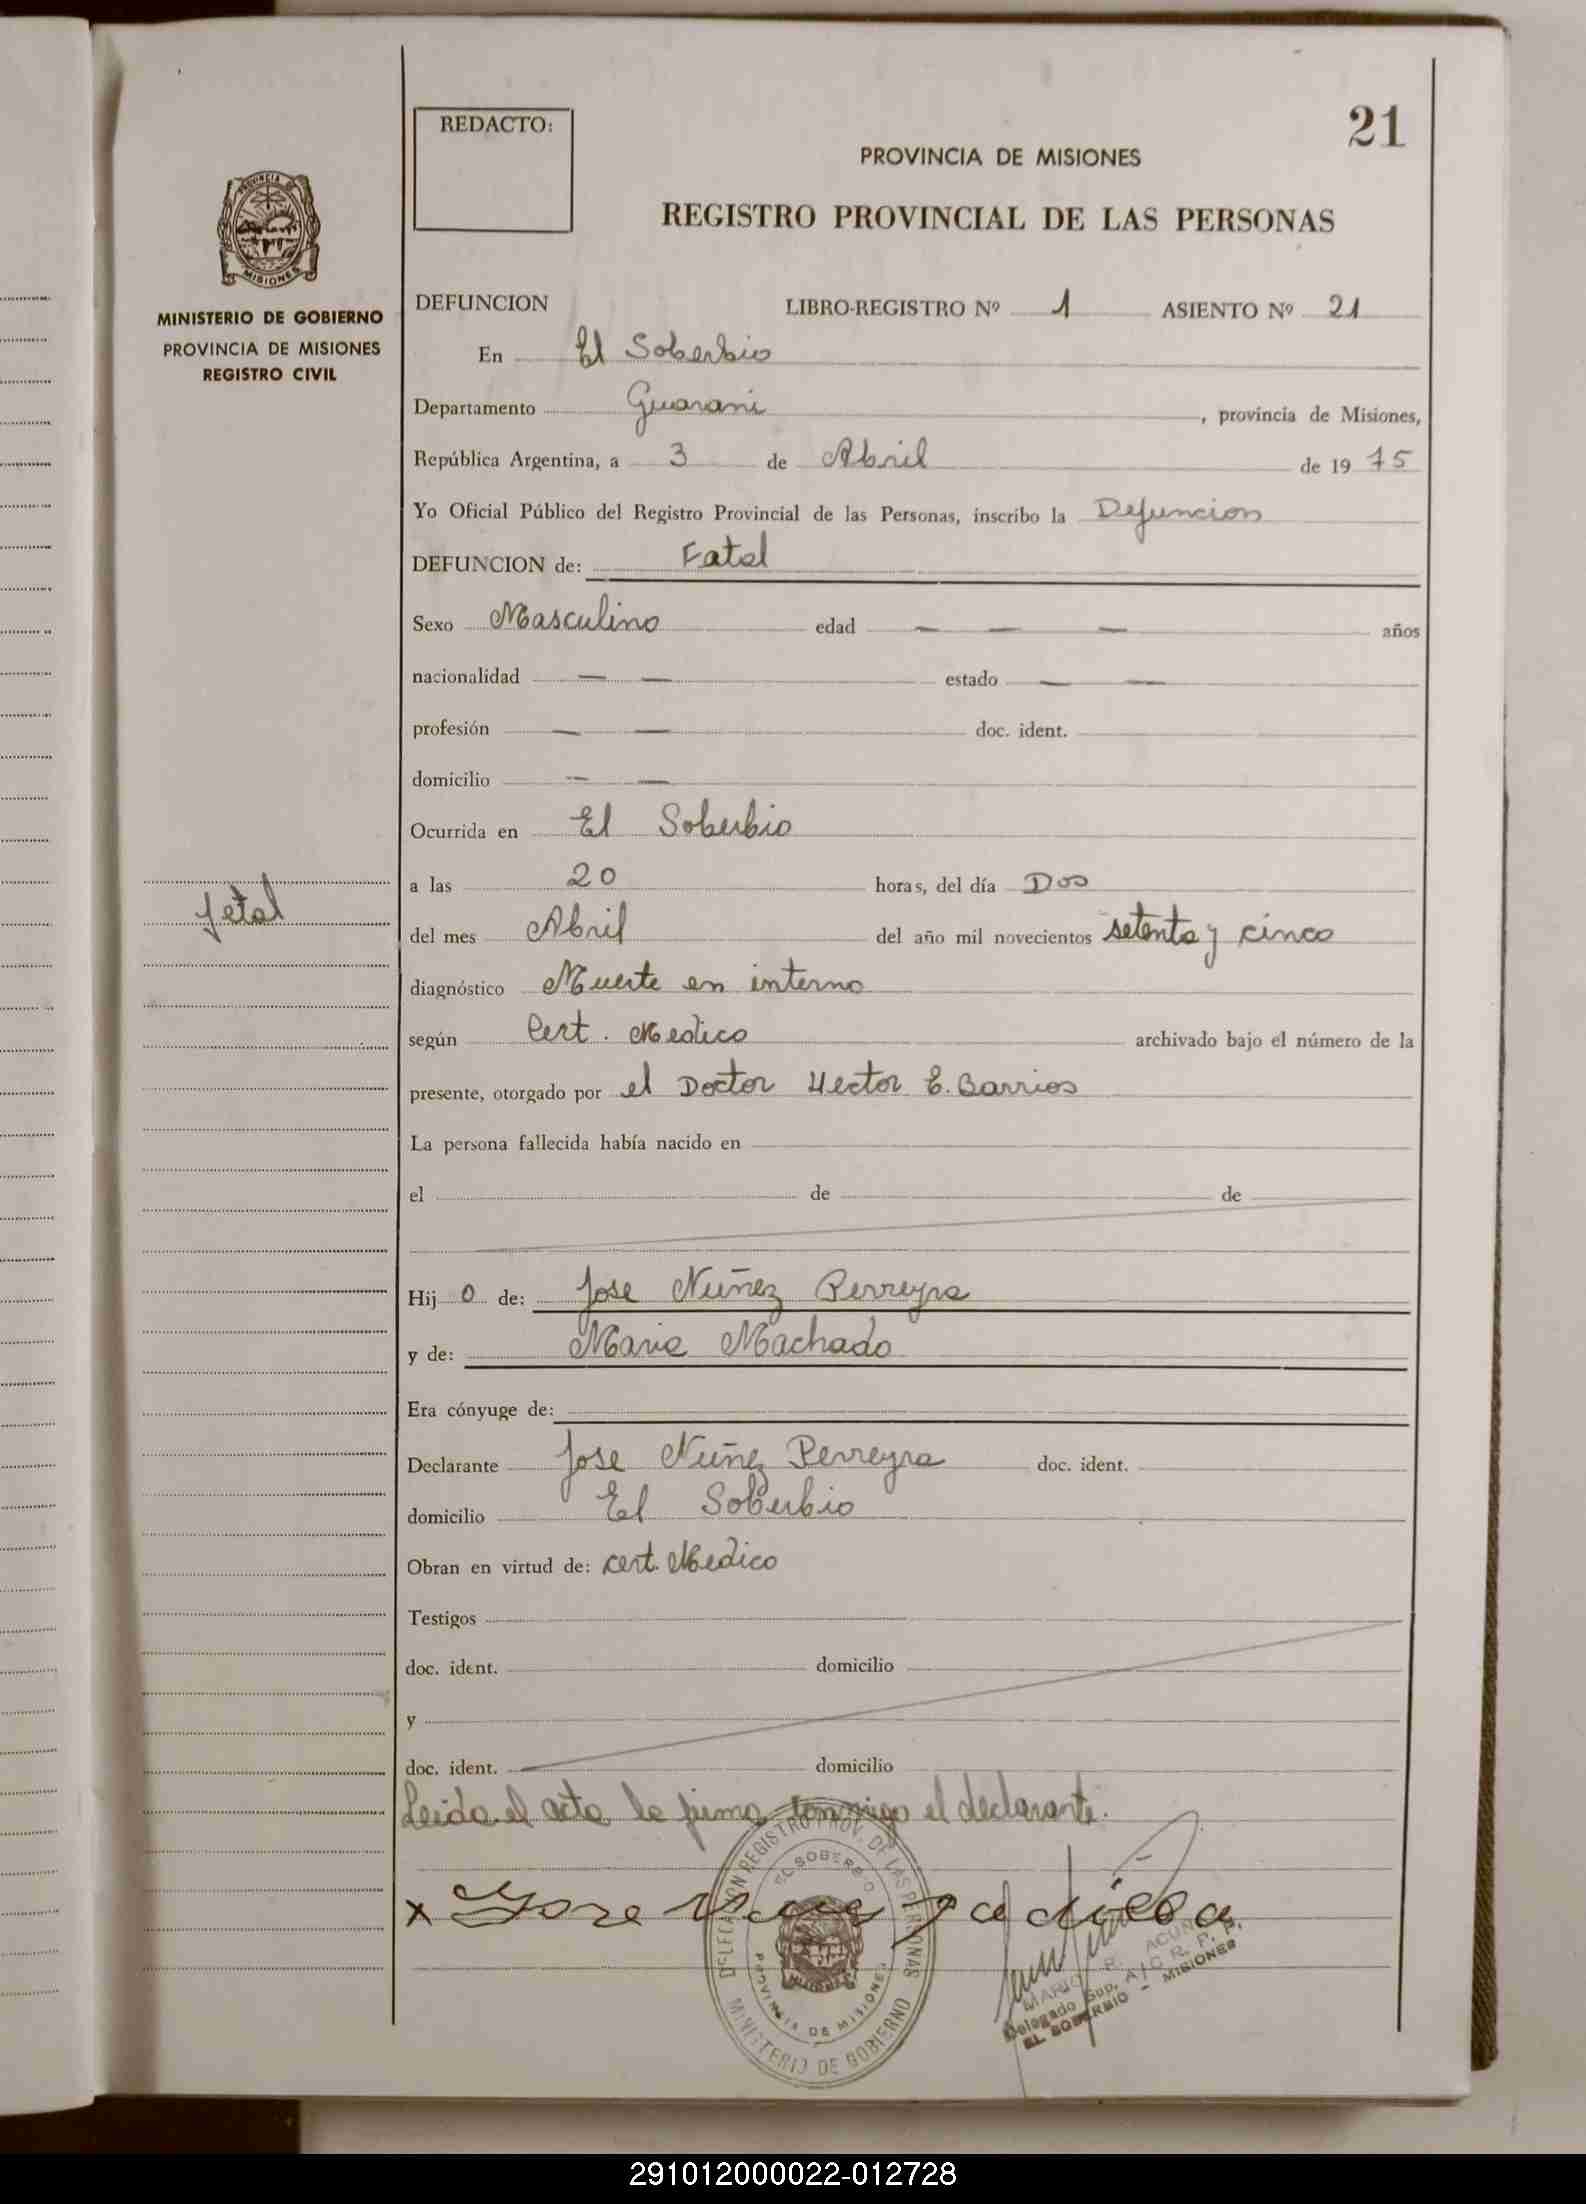 21
REDACTO:
PROVINCIA DE MISIONES
REGISTRO PROVINCIAL DE LAS PERSONAS
PROVINCIA DE
MISIONES
MINISTERIO DE GOBIERNO
PROVINCIA DE MISIONES
REGISTRO CIVIL
DEFUNCION LIBRO-REGISTRO Nº 1 ASIENTO Nº 21
En El Soberbio
Departamento Guarani, provincia de Misiones,
República Argentina, a 3 de Abril de 1975
Yo Oficial Público del Registro Provincial de las Personas, inscribo la Defuncion
DEFUNCION de: Fatal
Sexo Masculino edad — — — años
nacionalidad — — estado — —
profesión — — doc. ident.
domicilio — —
Ocurrida en El Soberbio
a las 20 horas, del día Dos
fetal
del mes Abril del año mil novecientos setenta y cinco
diagnóstico Muerte en interno
según Cert. Medico archivado bajo el número de la
presente, otorgado por el Doctor Hector E. Barrios
La persona fallecida había nacido en
el de de
Hijo de: Jose Nuñez Perreyra
y de: Maria Machado
Era cónyuge de:
Declarante Jose Nuñez Perreyra doc. ident.
domicilio El Soberbio
Obran en virtud de: cert. Medico
Testigos
doc. ident. domicilio
y
doc. ident. domicilio
Leida el acta la firma conmigo el declarante.
DELEGACION REGISTRO PROV. DE LAS PERSONAS
EL SOBERBIO
PROVINCIA DE MISIONES
MINISTERIO DE GOBIERNO
x Jose
MARIO R. ACUÑA
Delegado Sup. A/C R. P. P.
EL SOBERBIO - MISIONES
291012000022-012728